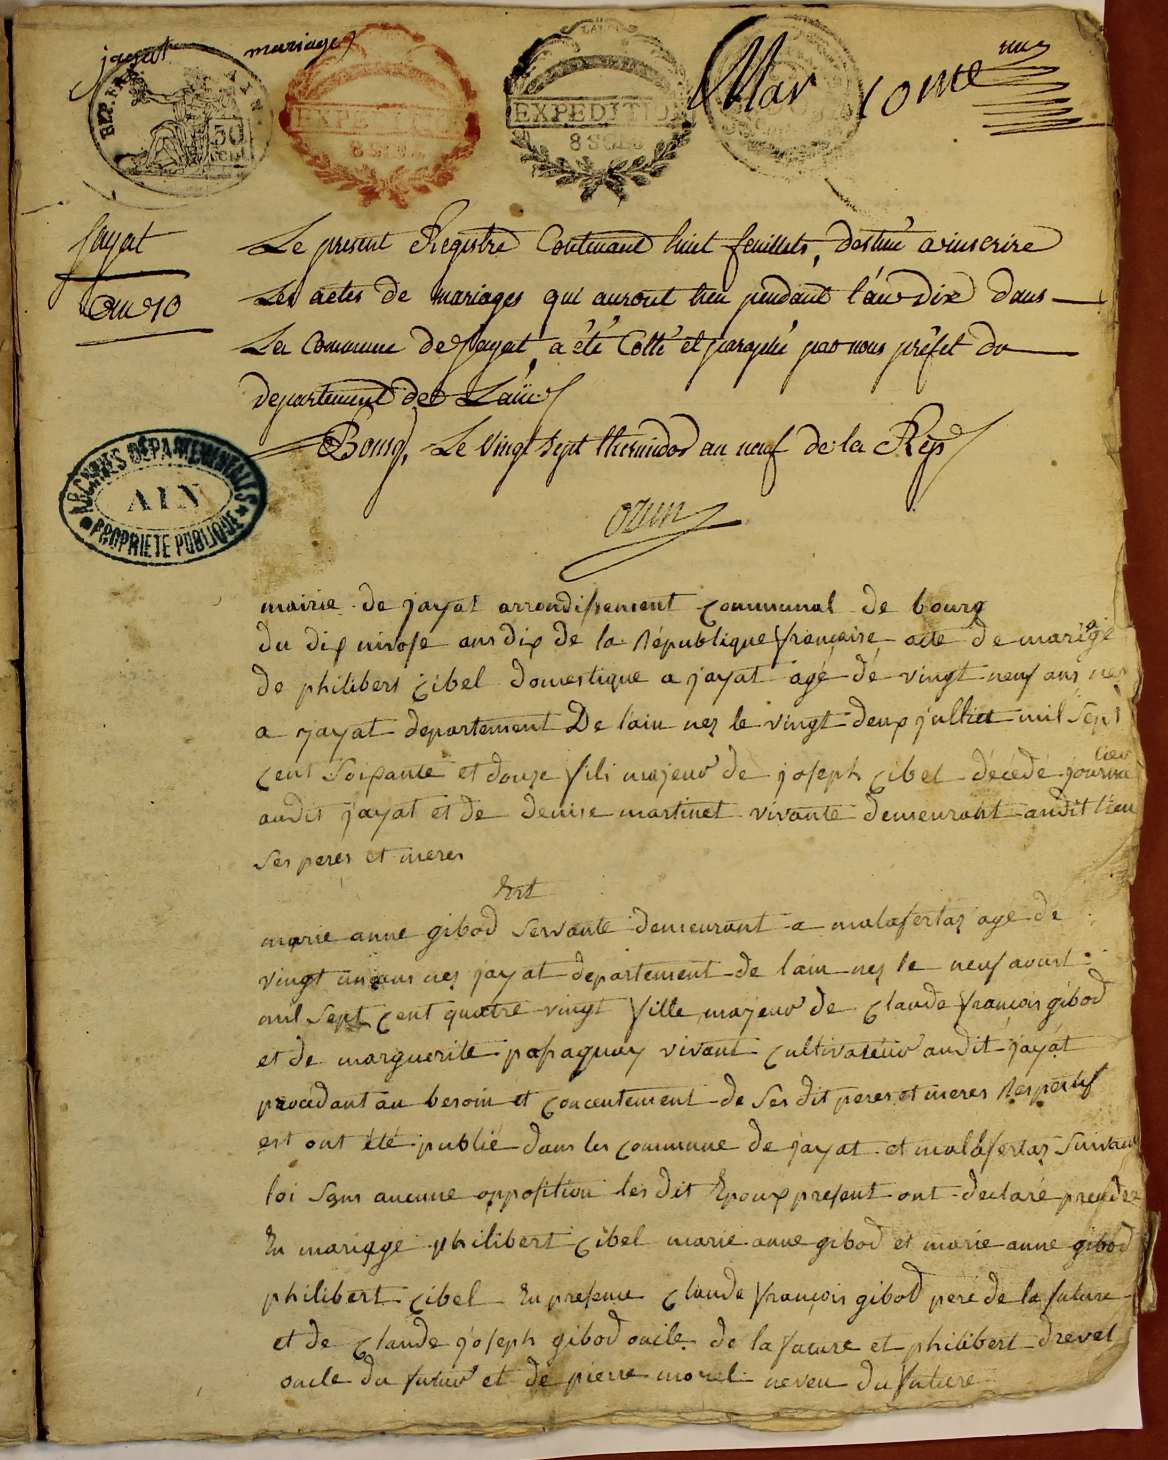 jayat mariage
REP. FRA.
50 cent.
EXPEDITION
8 SOLS
EXPEDITION
8 SOLS
Mar 10me
Jayat
an 10
Le present Registre Contenant huit feuillets, destiné a inscrire
Les actes de mariages qui auront lieu pendant l'an dix dans
La Commune de Jayat, a été Cotté et paraphé par nous préfet du
departement de L'ain
Bourg, Le vingt sept thermidor an neuf de la Rep
ozun
ARCHIVES DÉPARTEMENTALES
AIN
PROPRIÉTÉ PUBLIQUE
mairie de jayat arrondissement communal de bourg
du dix nivose ans dix de la République française acte de mariage
de philibert cibel domestique a jayat agé de vingt neuf ans nez
a jayat departement De l'ain nez le vingt deux julliet mil sept
cent soixante et douze fili majeur de joseph cibel décédé
audit jayat et de denise martinet vivante demeurant audit lieu
ses peres et meres
Ert
marie anne gibod servante demeurant a malafertaz age de
vingt un ans nez jayat departement de l'ain nez le neuf avust
mil sept cent quatre vingt fille majeur de claude françois gibod
et de marguerite papaguay vivant cultivateur audit jayat
procédant au besoin et concentement de ses dit peres et meres Respectif
est ont été publié dans les commune de jayat et malafertaz suivant
loi sans aucunne opposition les dit Epoux present ont declaré prendre
En mariage philibert cibel marie anne gibod et marie anne gibod
philibert cibel En presence claude françois gibod pere de la future
et de claude joseph gibod oncle de la future et philibert drevet
oncle du futur et de pierre morel neveu du future